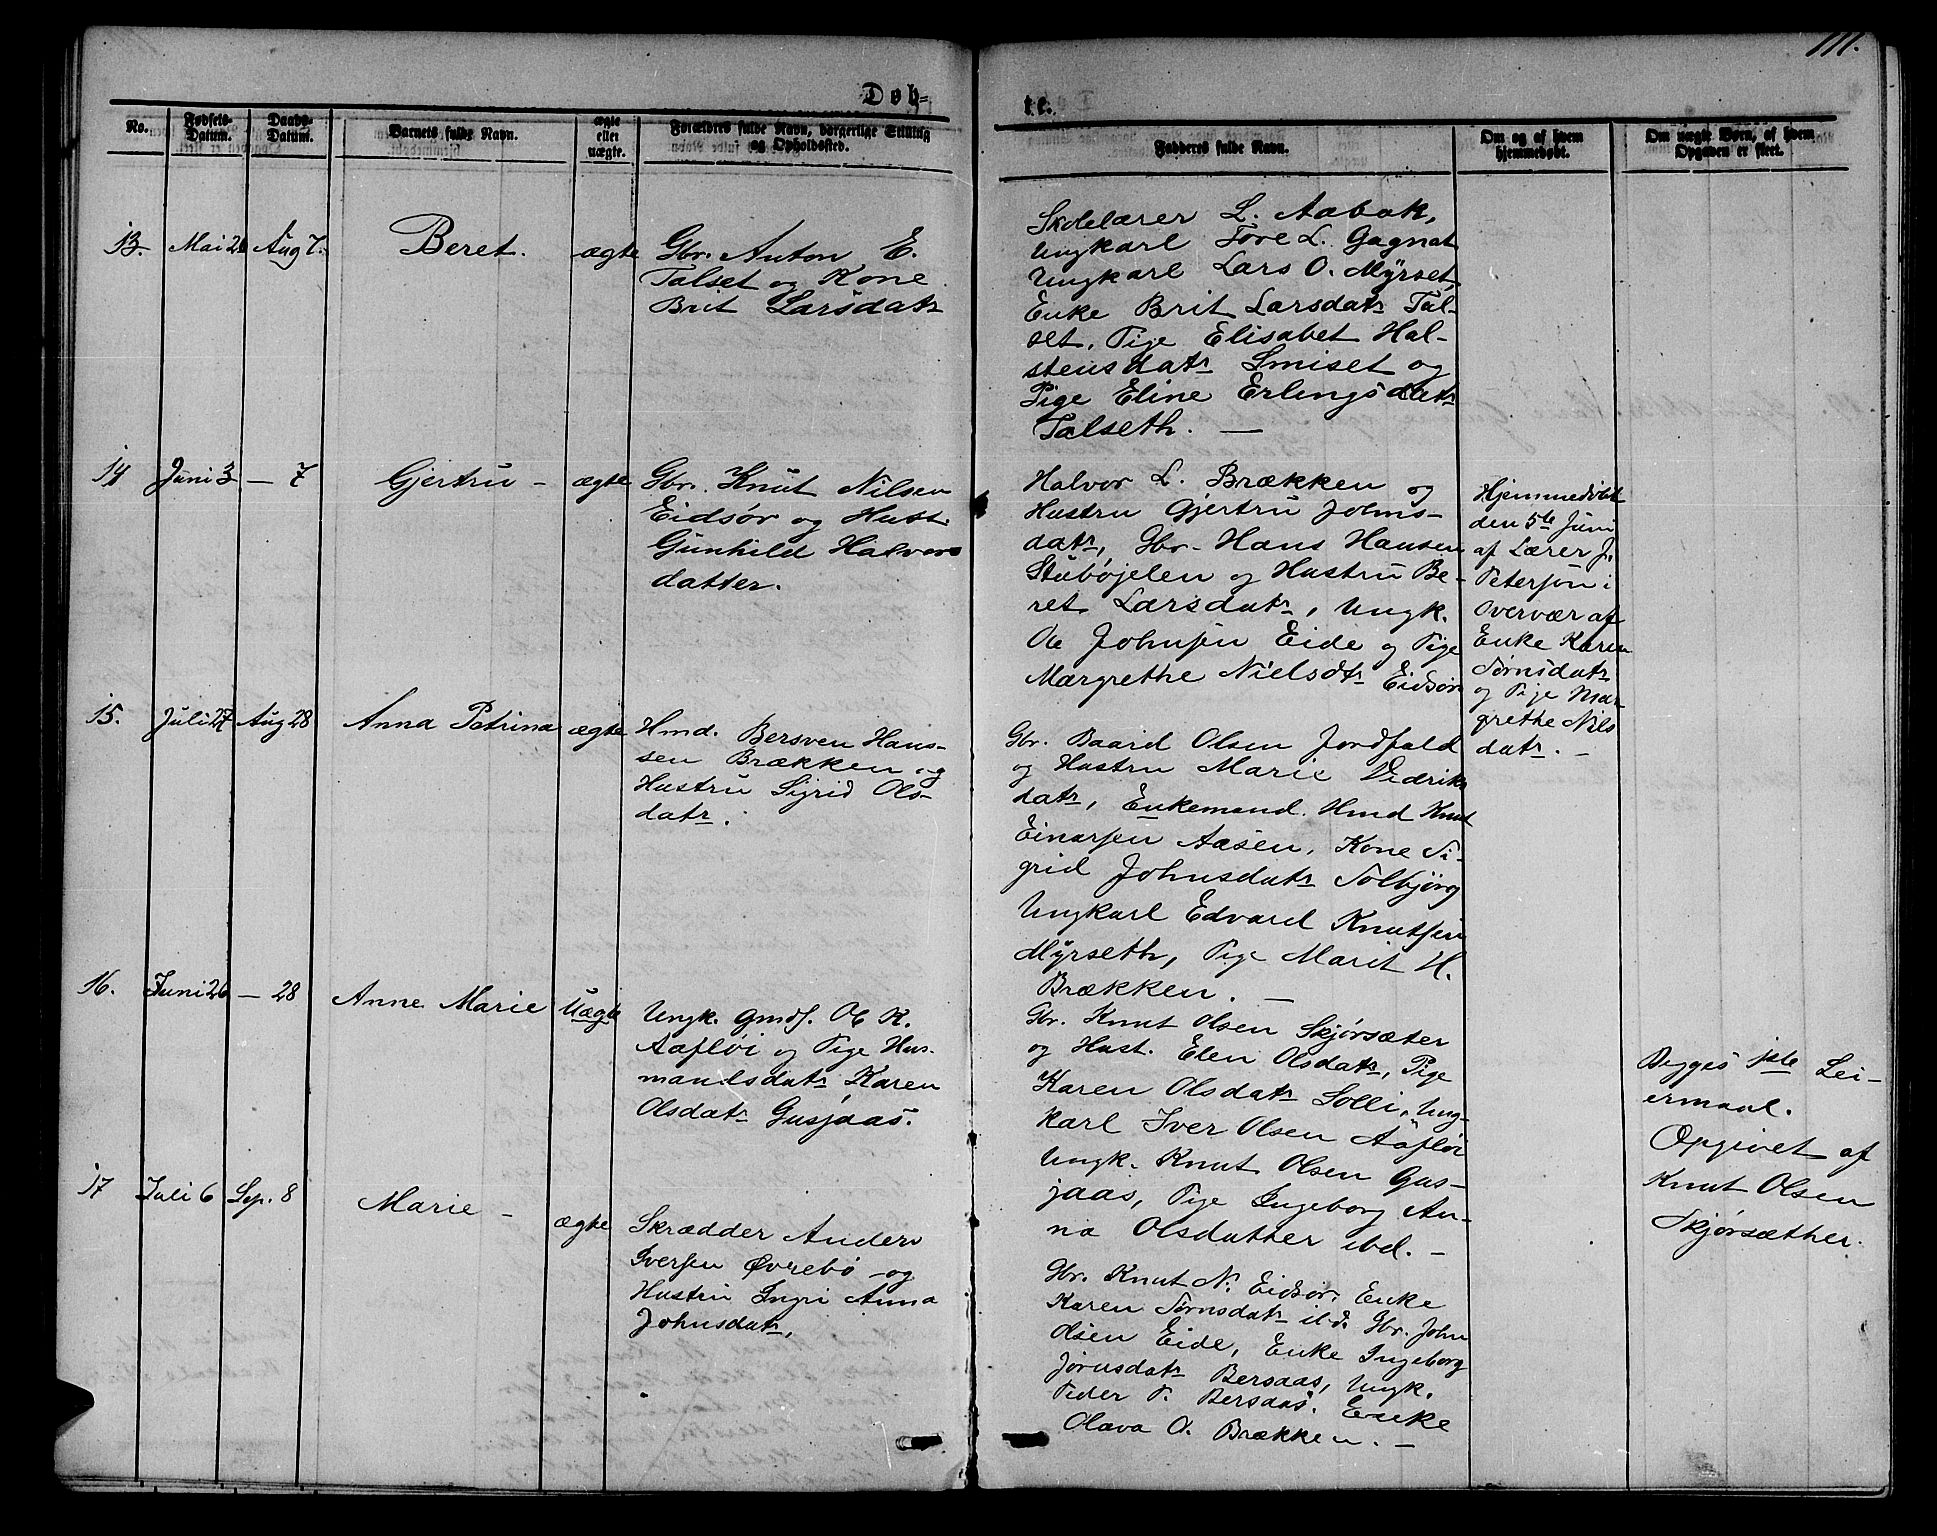 111.
Døb-
te.
No.
Fødsels-
Datum.
Daabs-
Datum.
Barnets fulde Navn.
ægte
eller
uægte.
Forældres fulde Navn, borgerlige Stilling
og Opholdssted.
Fadderes fulde Navn.
Om og af hvem
hjemmedøbt.
Om uægte Børn, af hvem
Opgaven er skeet.
13. Mai 26 Aug 7. Beret. ægte
Gbr. Anton E.
Talset og Kone
Brit Larsdatr
Skolelærer L. Aabak,
Ungkarl Tore L. Gagnat
Ungkarl Lars O. Myrset,
Enke Brit Larsdatr Tal-
set, Pige Elisabet Hal-
stensdatr Smiset og
Pige Eline Erlingsdatr
Talseth. —
14 Juni 3 — 7 Gjertru - ægte
Gbr. Knut Nilsen
Eidsør og Hust.
Gunhild Halvors
datter.
Halvor L. Brækken og
Hustru Gjertru Johns-
datr, Gbr. Hans Hansen
Stubøjelen og Hustru Be-
ret Larsdatr, Ungk.
Ole Johnsen Eide og Pige
Margrethe Nielsdtr Eidsør
Hjemmedøbt
den 5te Juni
af Lærer J.
Petersøn i
Overvær af
Enke Karen
Jørnsdatr
og Pige Mar-
grethe Nils
datr. —
15. Juli 27 Aug 28 Anna Petrina ægte
Hmd. Bersven Hans-
sen Brækken og
Hustru Sigrid Ols-
datr.
Gbr. Baard Olsen Jordfald
og Hustru Marie Didriks
datr, Enkemand. Hmd Knut
Einarsen Aasen, Kone Si-
grid Johnsdatr Solbjørg
Ungkarl Edvard Knutsen
Myrseth, Pige Marit H.
Brækken. —
16. Juni 26 — 28 Anne Marie Uægte
Ungk. Gmdf. Ole K.
Aafløi og Pige Hus-
mandsdatr Karen
Olsdatr Gusjaas.
Gbr. Knut Olsen Skjørsæter
og Hust. Elen Olsdatr, Pige
Karen Olsdatr Solli, Ung-
karl Iver Olsen Aafløi
Ungk. Knut Olsen Gus-
jaas, Pige Ingeborg An-
na Olsdatter ibd. —
Begges 1ste Lei-
ermaal.
Opgivet af
Knut Olsen
Skjørsæther.
17 Juli 6 Sep. 8 Marie - ægte
Skrædder Anders
Iversen Øvrebø og
Hustru Ingri Anna
Johnsdatr,
Gbr. Knut N. Eidsør, Enke
Karen Jørnsdatr ibd. Gbr. John
Olsen Eide, Enke Ingeborg
Jørnsdatr Bersaas, Ungk.
Peder P. Bersaas. Enke
Olava O. Brækken. —